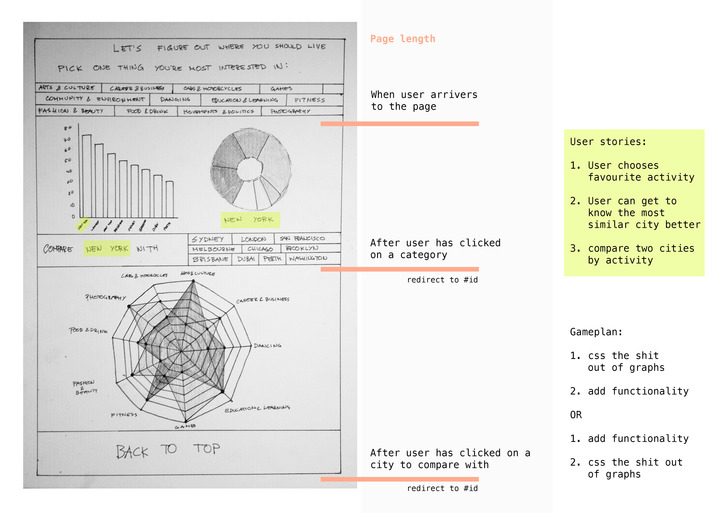 LET'S FIGURE OUT WHERE YOU SHOULD LIVE
PICK ONE THING YOU'RE MOST INTERESTED IN:
ARTS & CULTURE CAREER & BUSINESS CARS & MOTORCYCLES GAMES
COMMUNITY & ENVIRONMENT DANCING EDUCATION & LEARNING FITNESS
FASHION & BEAUTY FOOD & DRINK MOVEMENTS & POLITICS PHOTOGRAPHY
80
60
50
40
20
10
0
NEW YORK
COMPARE NEW YORK WITH
SYDNEY LONDON SAN FRANCISCO
MELBOURNE CHICAGO BROOKLYN
BRISBANE DUBAI PERTH WASHINGTON
CARS & MOTORCYCLES
ARTS & CULTURE
PHOTOGRAPHY
CAREER & BUSINESS
FOOD & DRINK
DANCING
FASHION
&
BEAUTY
EDUCATION & LEARNING
FITNESS
GAMES
BACK TO TOP
Page length
When user arrivers
to the page
After user has clicked
on a category
redirect to #id
After user has clicked on a
city to compare with
redirect to #id
User stories:
1. User chooses
favourite activity
2. User can get to
know the most
similar city better
3. compare two cities
by activity
Gameplan:
1. css the shit
out of graphs
2. add functionality
OR
1. add functionality
2. css the shit out
of graphs